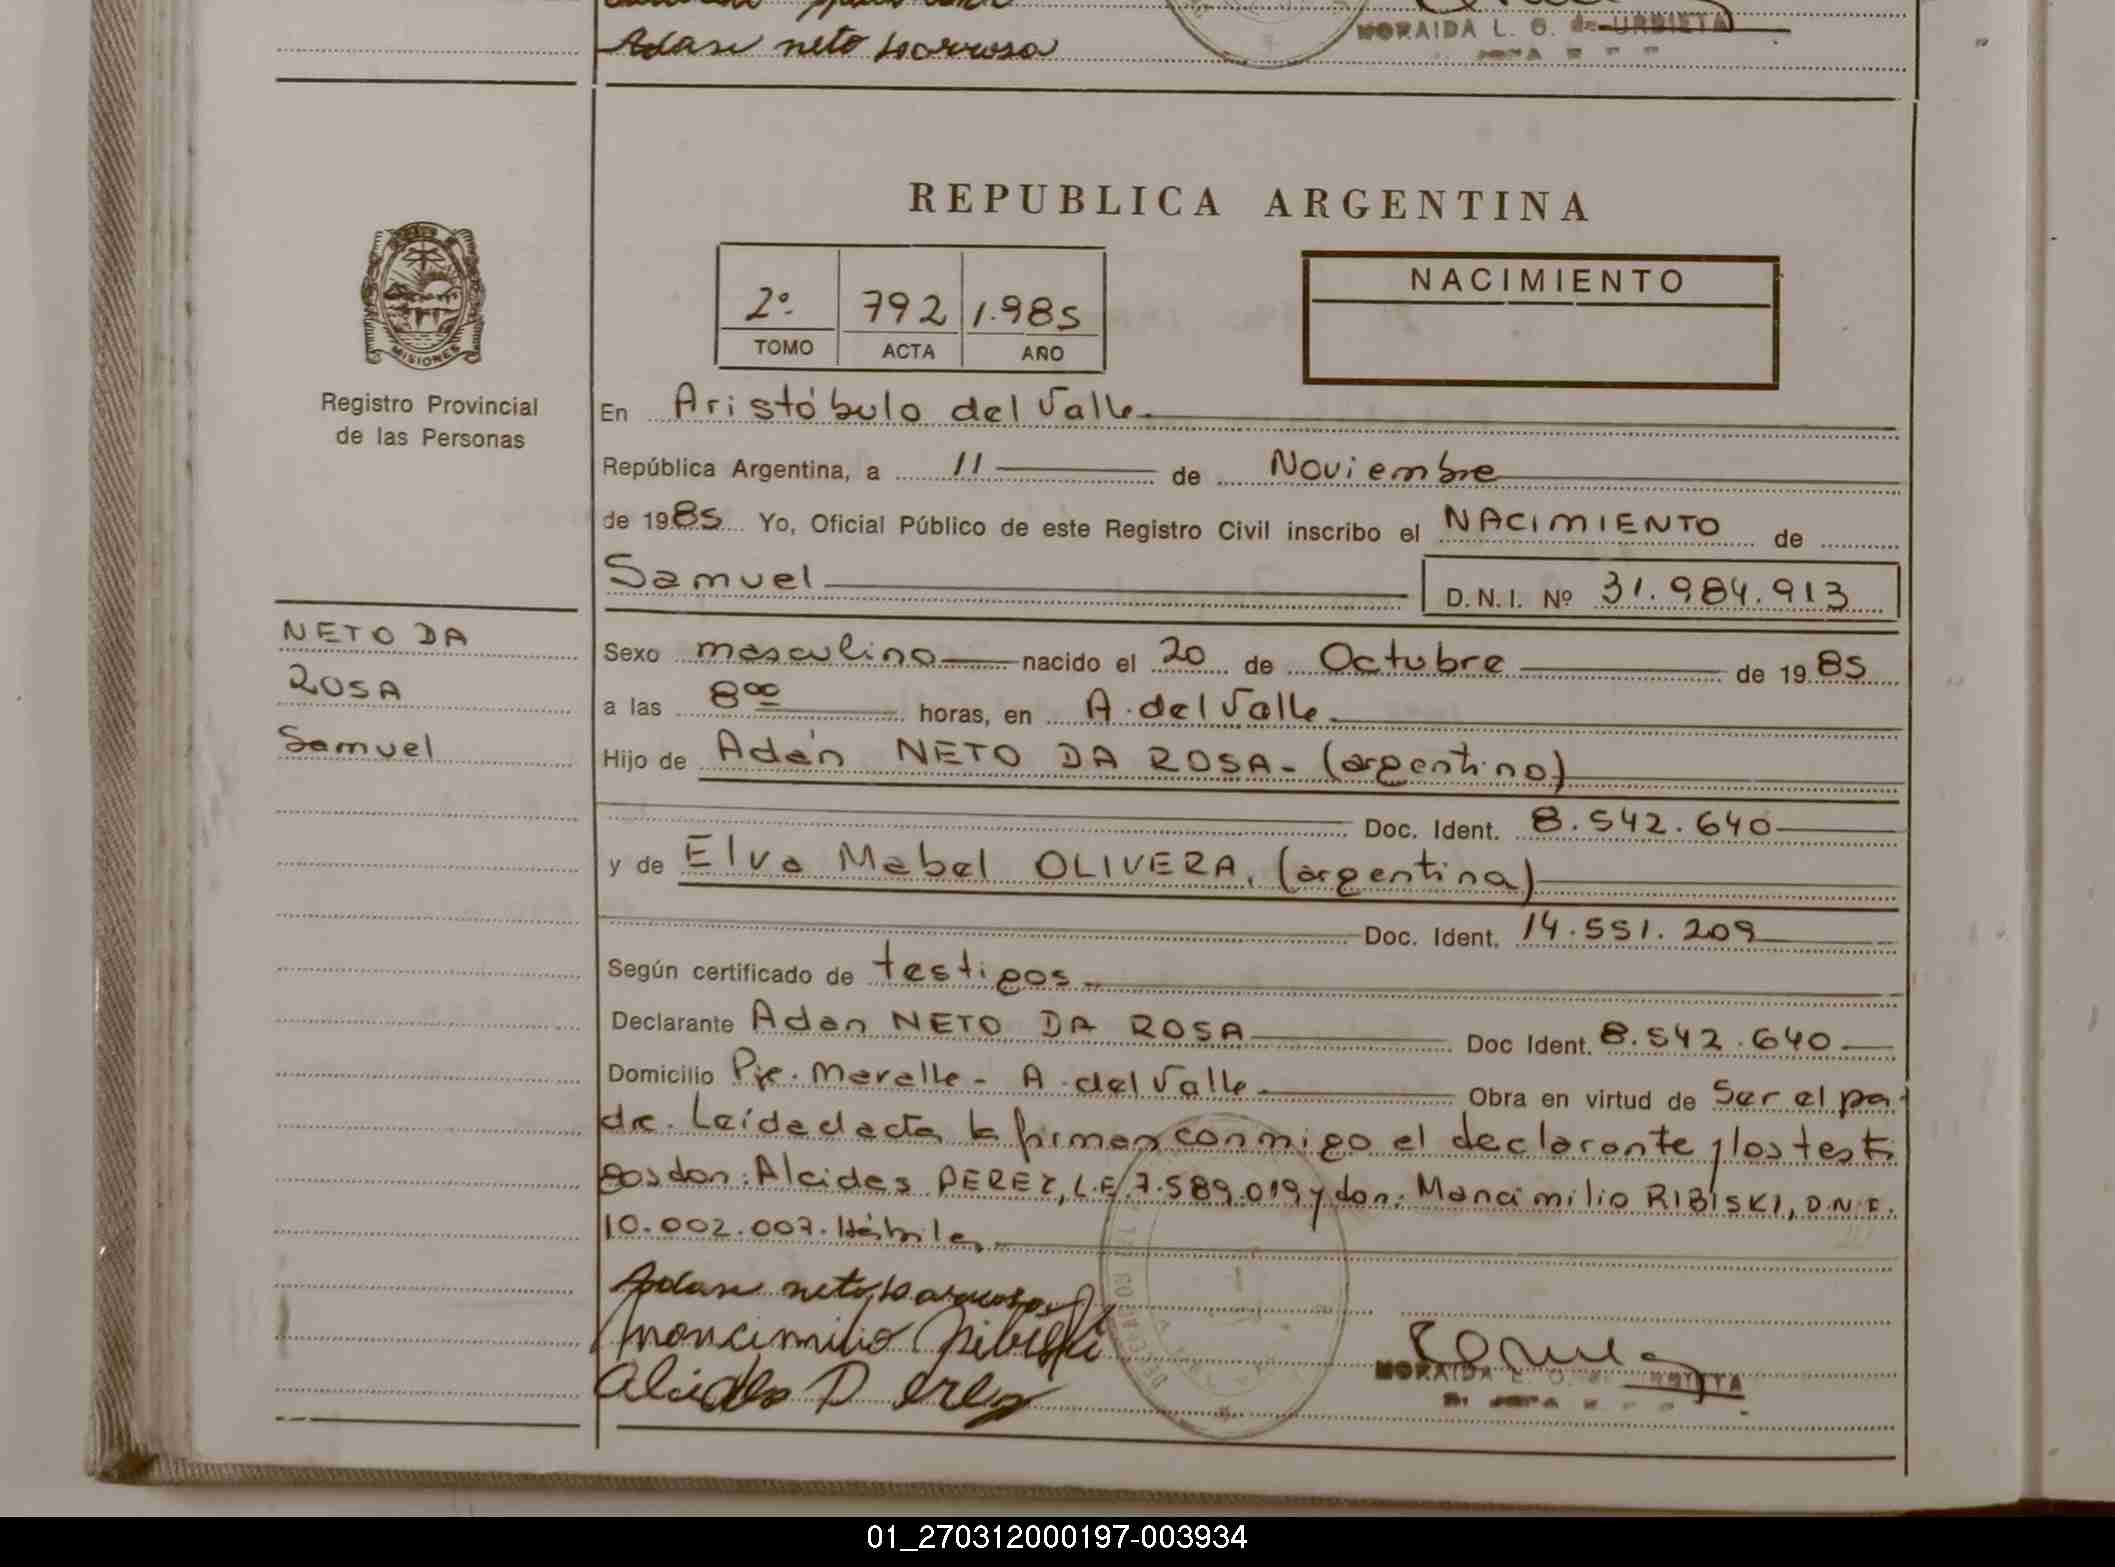 Adan neto
MORAIDA L. G. de URBIETA
REPUBLICA ARGENTINA
2º 792 1.985
TOMO ACTA AÑO
NACIMIENTO
MISIONES
Registro Provincial
de las Personas
En Aristóbulo del Valle
República Argentina, a 11 de Noviembre
de 1985 Yo, Oficial Público de este Registro Civil inscribo el NACIMIENTO de
Samuel D.N.I. Nº 31.984.913
NETO DA
ROSA
Samuel
Sexo masculino nacido el 20 de Octubre de 1985
a las 8 00 horas, en A. del Valle
Hijo de Adán NETO DA ROSA - (argentino)
Doc. Ident. 8.542.640
y de Elva Mabel OLIVERA, (argentina)
Doc. Ident. 14.551.209
Según certificado de testigos
Declarante Adan NETO DA ROSA Doc Ident. 8.542.640
Domicilio Pje. Maralle - A. del Valle Obra en virtud de Ser el pa-
dre. Leída el acta la firman conmigo el declarante y los testi
gos don: Alcides PEREZ, L.E. 7.589.019 y don: Mancimilio RIBISKI, D.N.I.
10.002.007. Hábiles
Adan neto
Mancimilio Ribiski
Alcides Perez
MORAIDA L. G. de URBIETA
01_270312000197-003934